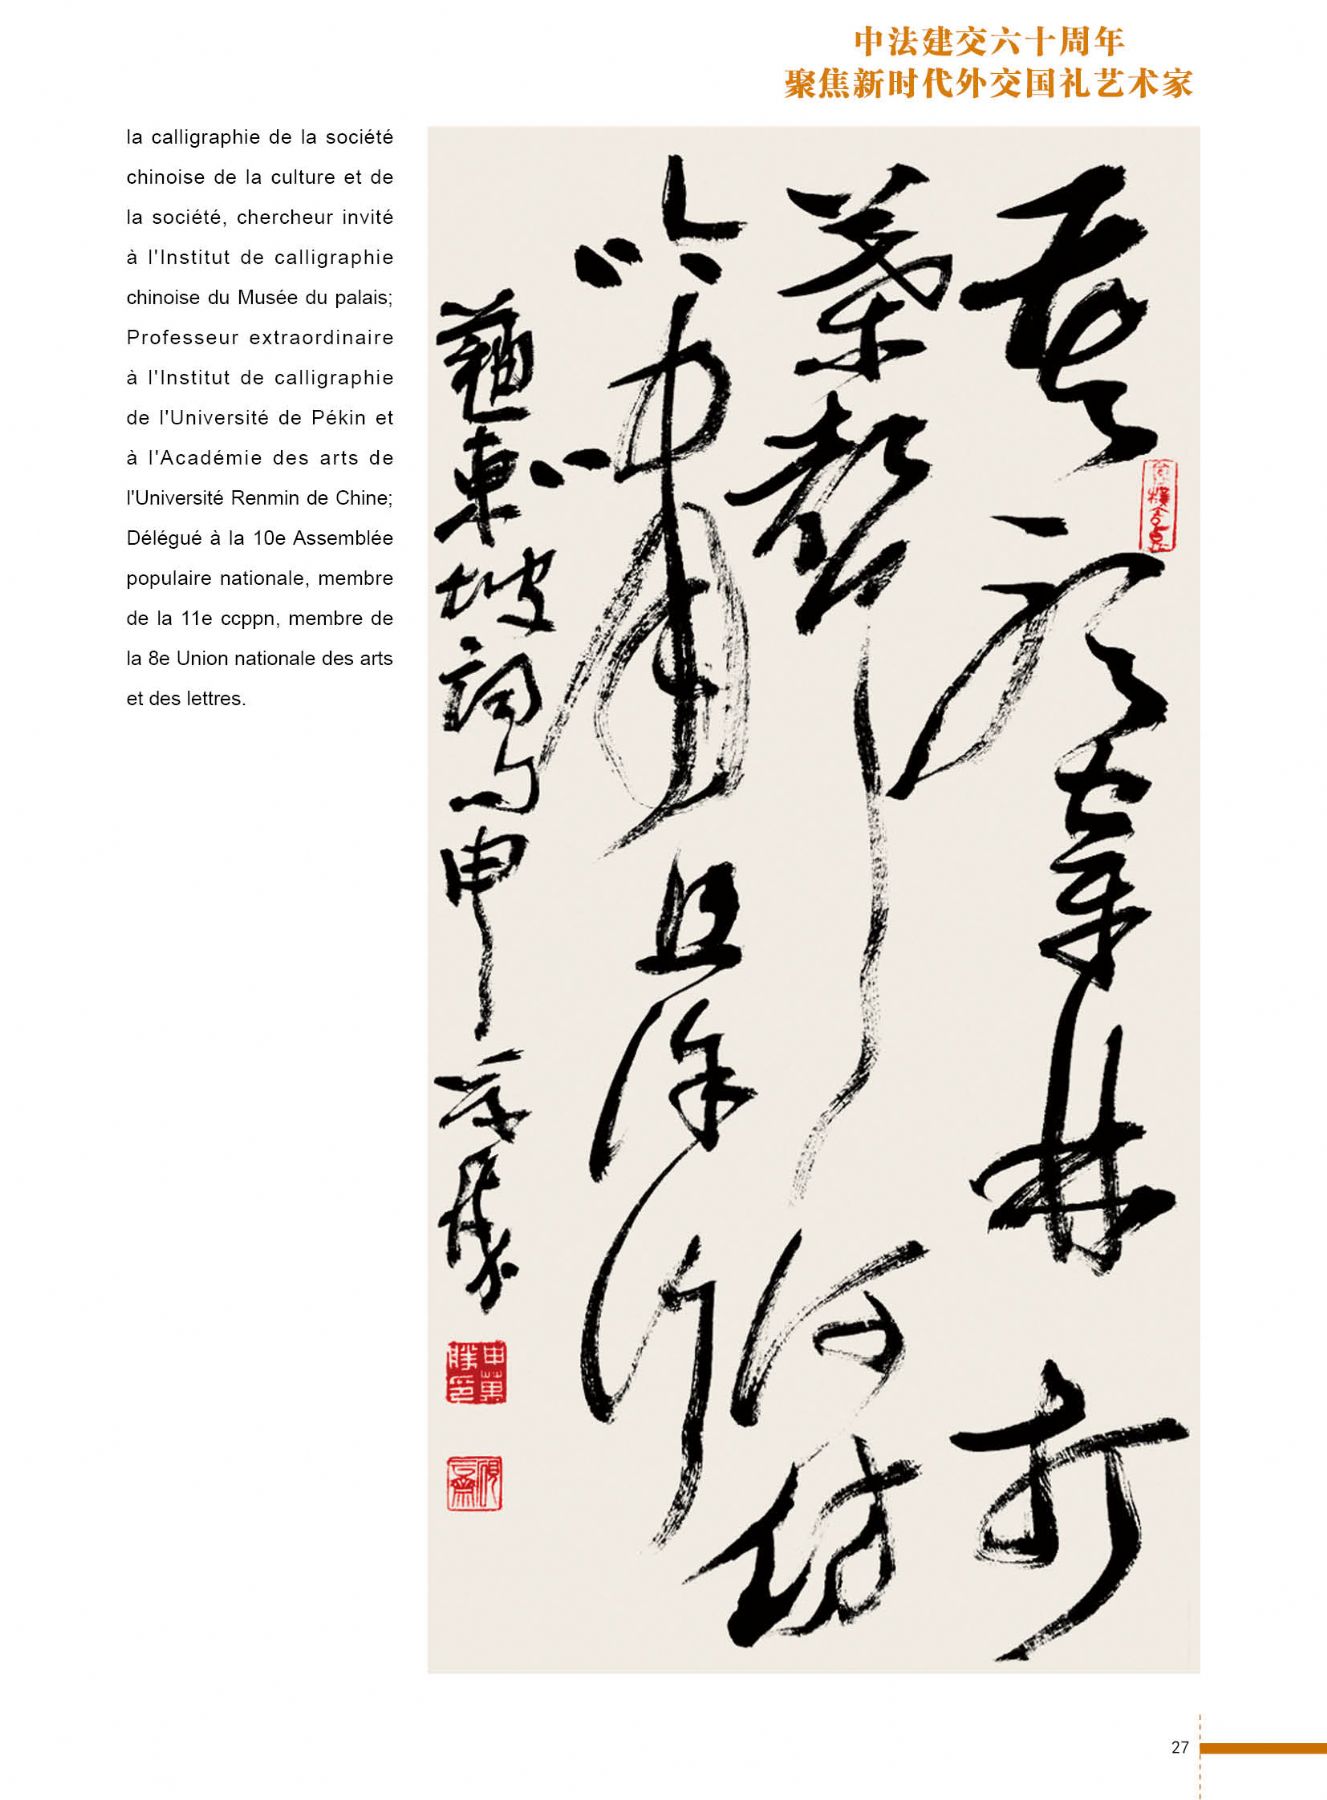 中法建交六十周年
聚焦新时代外交国礼艺术家
la calligraphie de la société
chinoise de la culture et de
la société, chercheur invité
à l'Institut de calligraphie
chinoise du Musée du palais;
Professeur extraordinaire
à l'Institut de calligraphie
de l'Université de Pékin et
à l'Académie des arts de
l'Université Renmin de Chine;
Délégué à la 10e Assemblée
populaire nationale, membre
de la 11e ccppn, membre de
la 8e Union nationale des arts
et des lettres.
莫聽穿林打
葉聲何妨
吟嘯且徐行
蘇東坡詞句申萬勝
申萬勝印
27